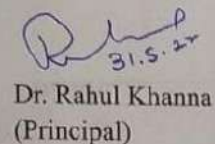 31.5.22
Dr. Rahul Khanna
(Principal)